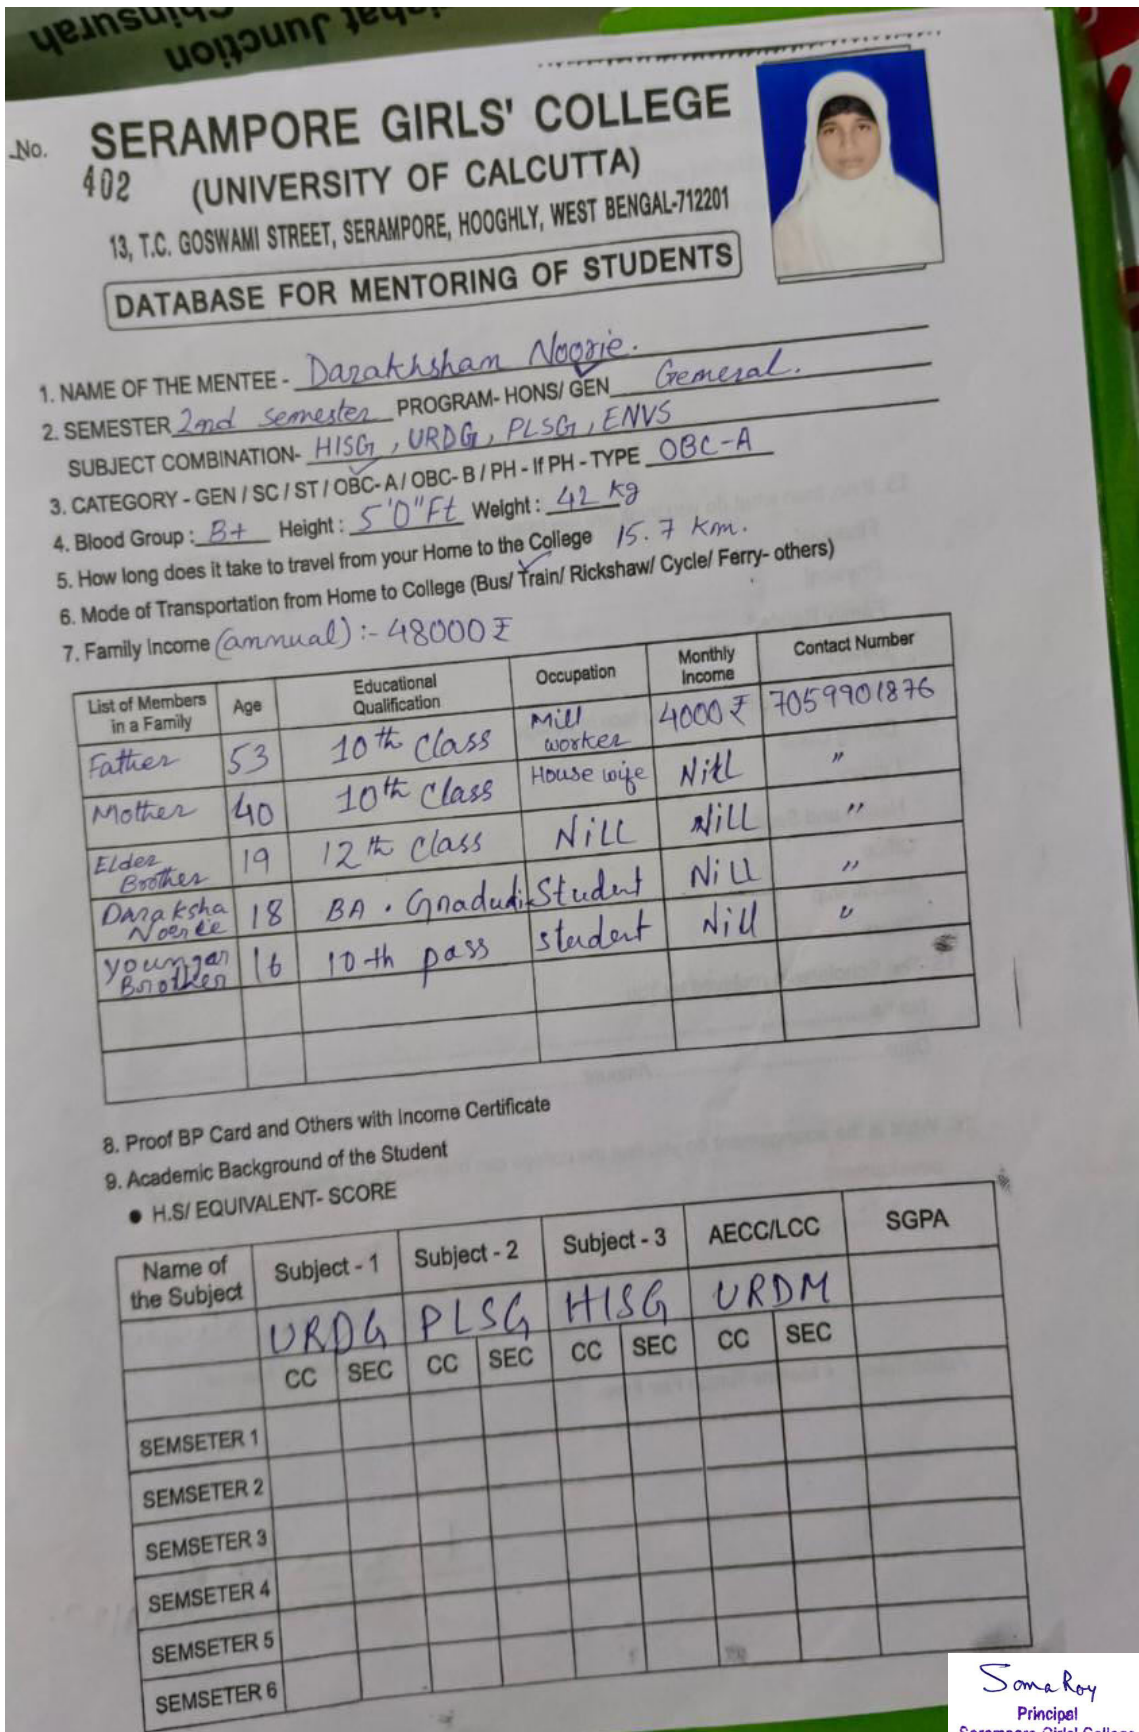 Junction
Chinsurah
No. SERAMPORE GIRLS' COLLEGE
402 (UNIVERSITY OF CALCUTTA)
13, T.C. GOSWAMI STREET, SERAMPORE, HOOGHLY, WEST BENGAL-712201
DATABASE FOR MENTORING OF STUDENTS
1. NAME OF THE MENTEE - Darakhsham Noorie.
2. SEMESTER 2nd semester PROGRAM- HONS/ GEN General.
SUBJECT COMBINATION- HISG, URDG, PLSG, ENVS
3. CATEGORY - GEN / SC / ST / OBC- A / OBC- B / PH - If PH - TYPE OBC-A
4. Blood Group : B+ Height : 5'0"Ft Weight : 42 kg
5. How long does it take to travel from your Home to the College 15.7 km.
6. Mode of Transportation from Home to College (Bus/ Train/ Rickshaw/ Cycle/ Ferry- others)
7. Family Income (annual) :- 48000 ₹
List of Members in a Family Age Educational Qualification Occupation Monthly Income Contact Number
Father 53 10th class Mill worker 4000 ₹ 7059901876
Mother 40 10th class House wife Nill "
Elder Brother 19 12th class Nill Nill "
Daraksha Noorie 18 BA . Gradudi Student Nill "
youngar Brother 16 10th pass student Nill "
8. Proof BP Card and Others with Income Certificate
9. Academic Background of the Student
● H.S/ EQUIVALENT- SCORE
Name of the Subject Subject - 1 Subject - 2 Subject - 3 AECC/LCC SGPA
URDG PLSG HISG URDM
CC SEC CC SEC CC SEC CC SEC
SEMSETER 1
SEMSETER 2
SEMSETER 3
SEMSETER 4
SEMSETER 5
SEMSETER 6
Soma Roy
Principal
Serampore Girls' College